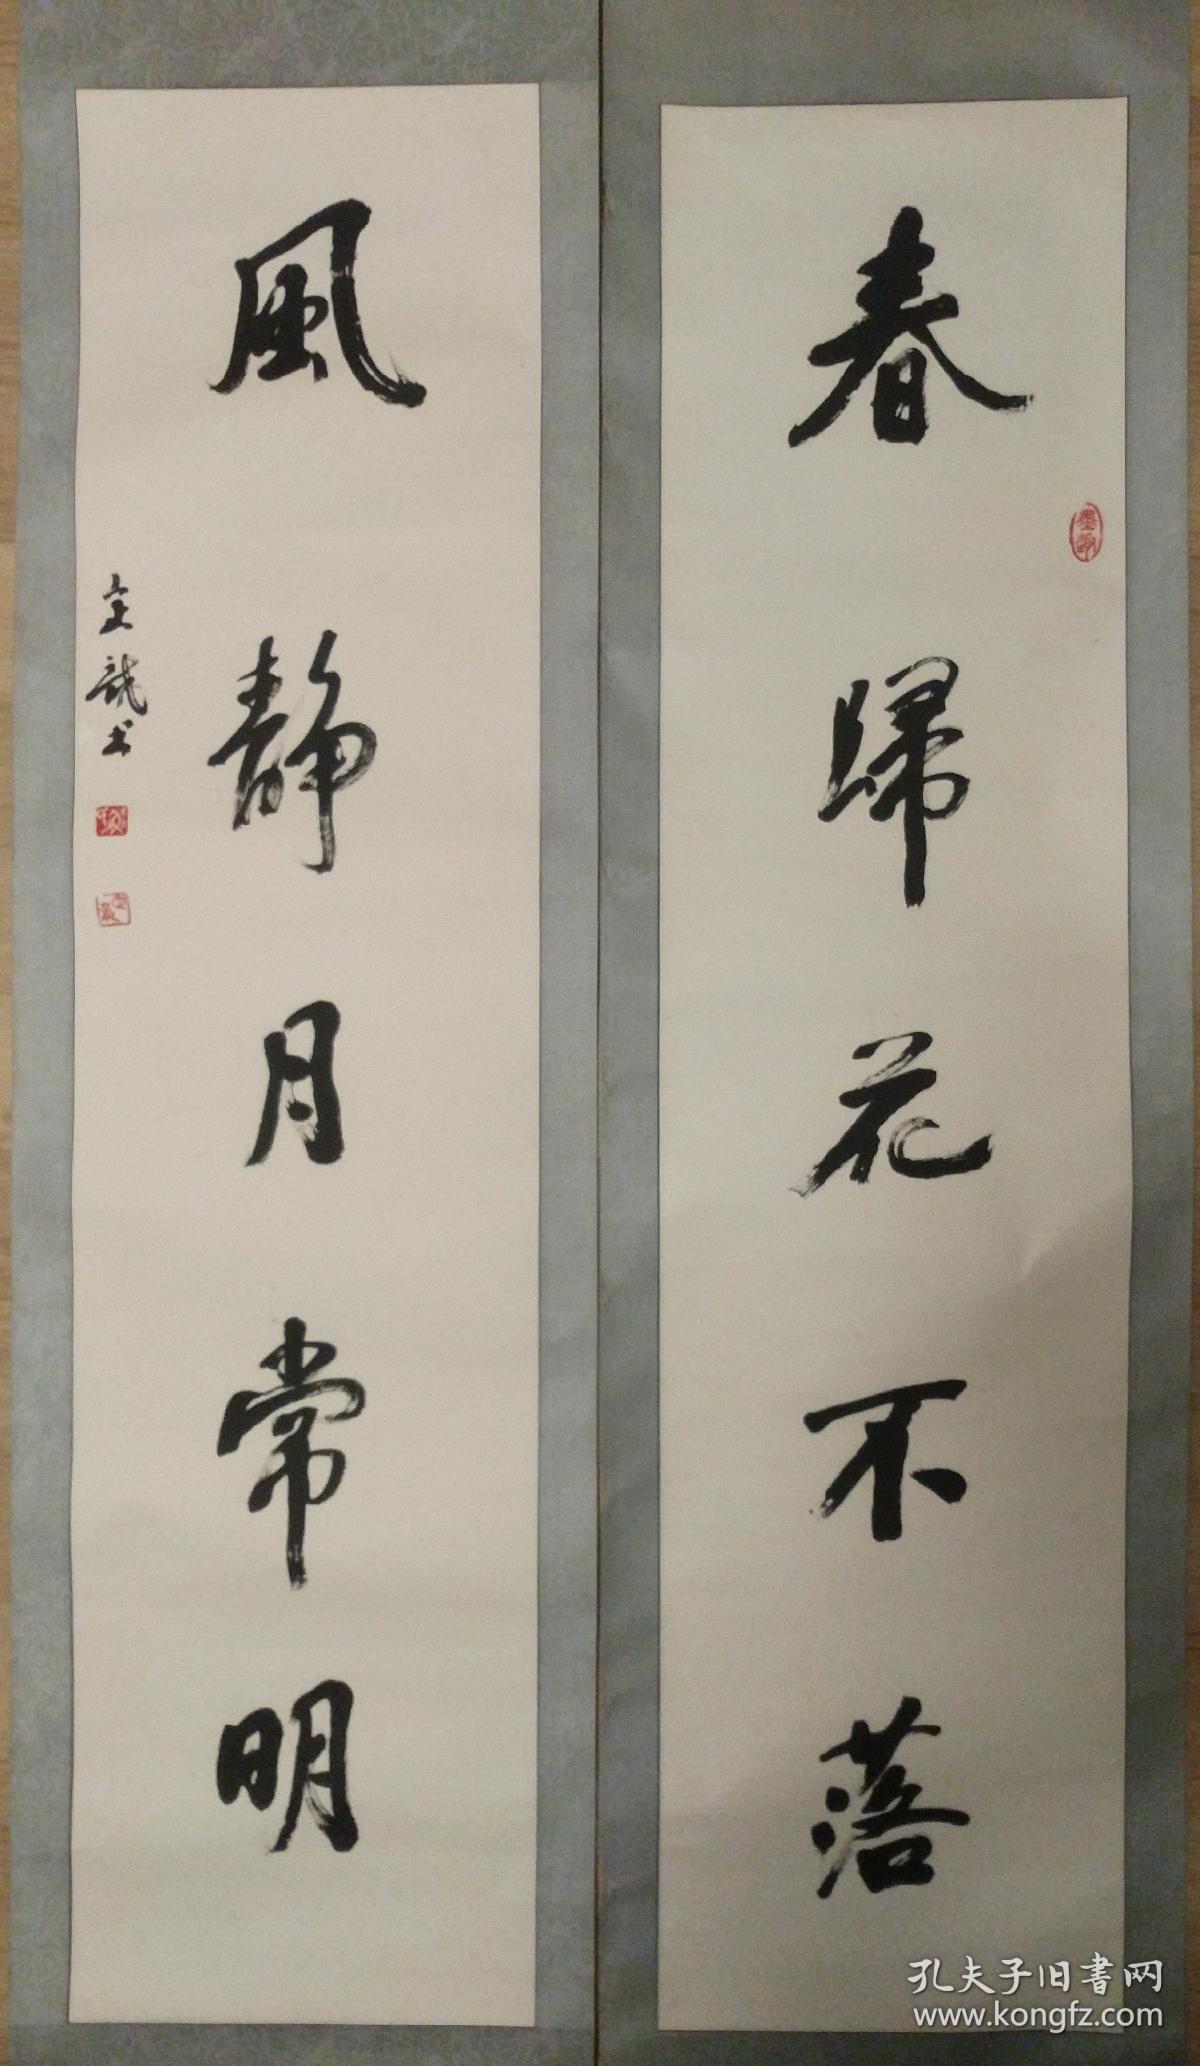 春歸花不落
風靜月常明
孔夫子旧書网
www.kongfz.com